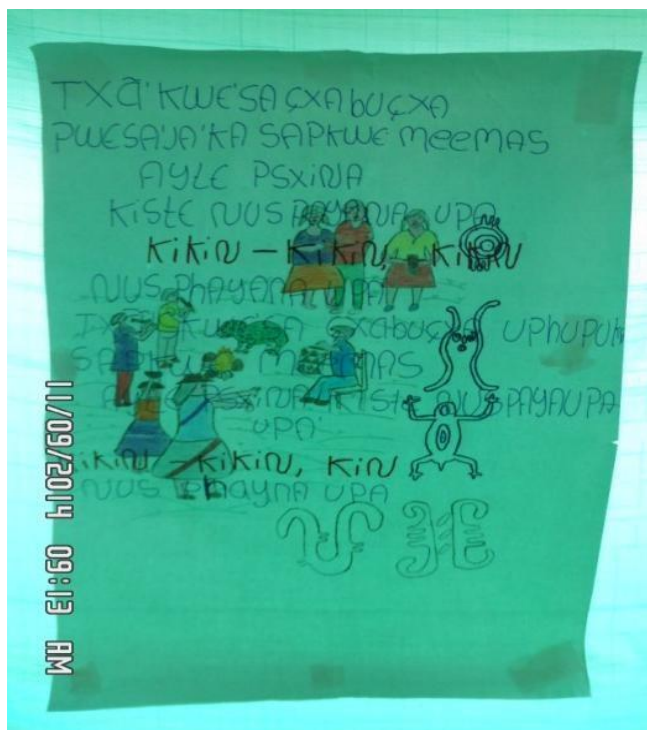 TXÃ'KWE'SA ÇXAbUÇXA
PWESA'JA'KA SAPKWE meemAS
AYTE PSXINA
KISTE NUS PAYANA UPA
KiKiN – KiKiN, KiKiN
NUS PhAYANA UPA
ÇXAbUÇXA UPhUPUN
meemAS
PSXINA KiSTE NUS PAYAUPA
UPA'
KiKiN, KiN
NUS PhAYNA UPA
11/09/2014 09:13 AM